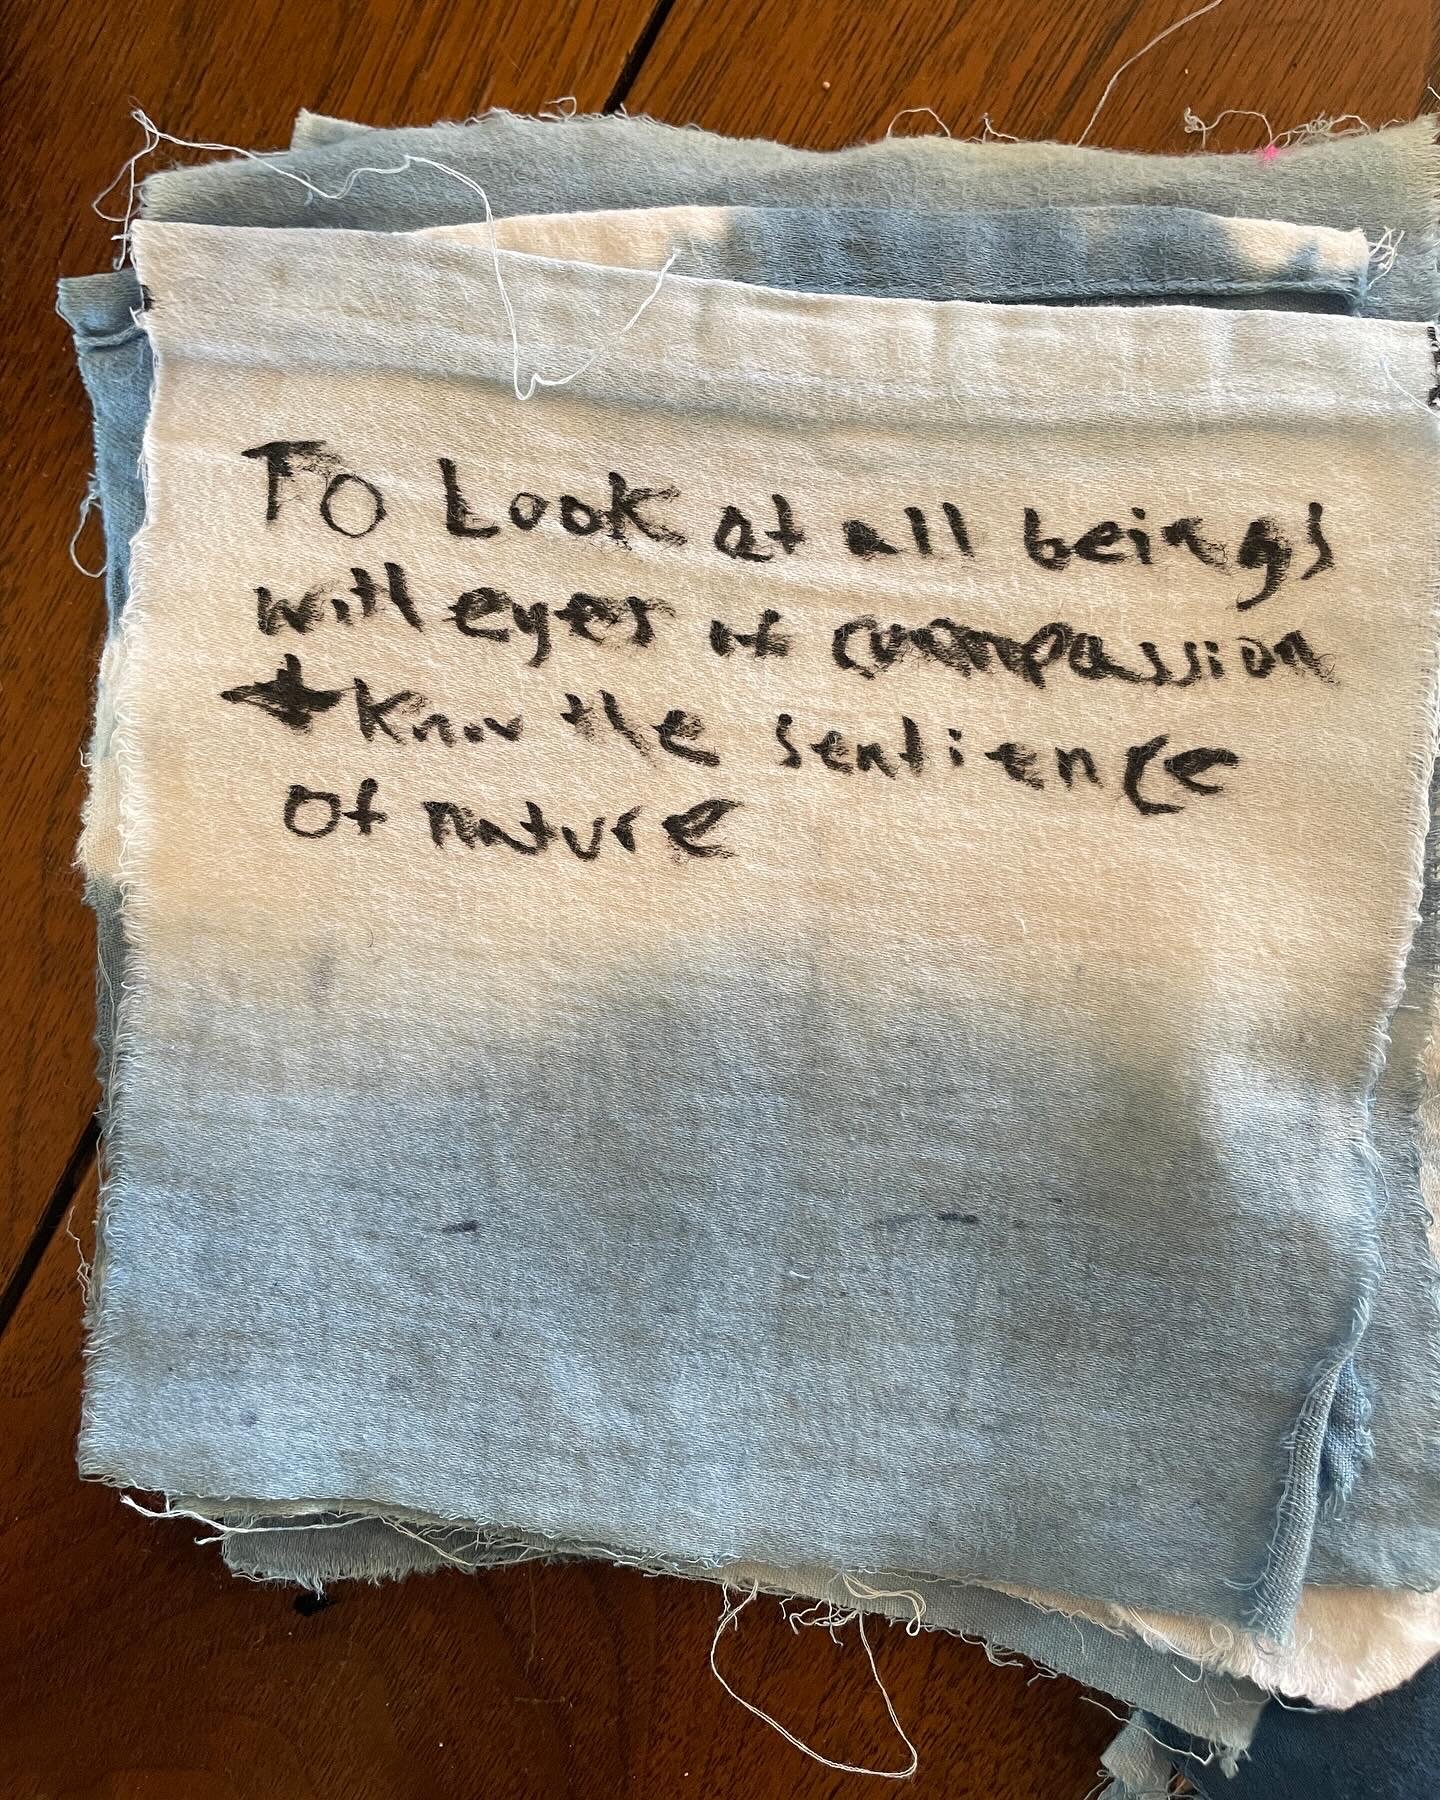 To Look at all beings
with eyes of compassion
+ Know the sentience
of nature